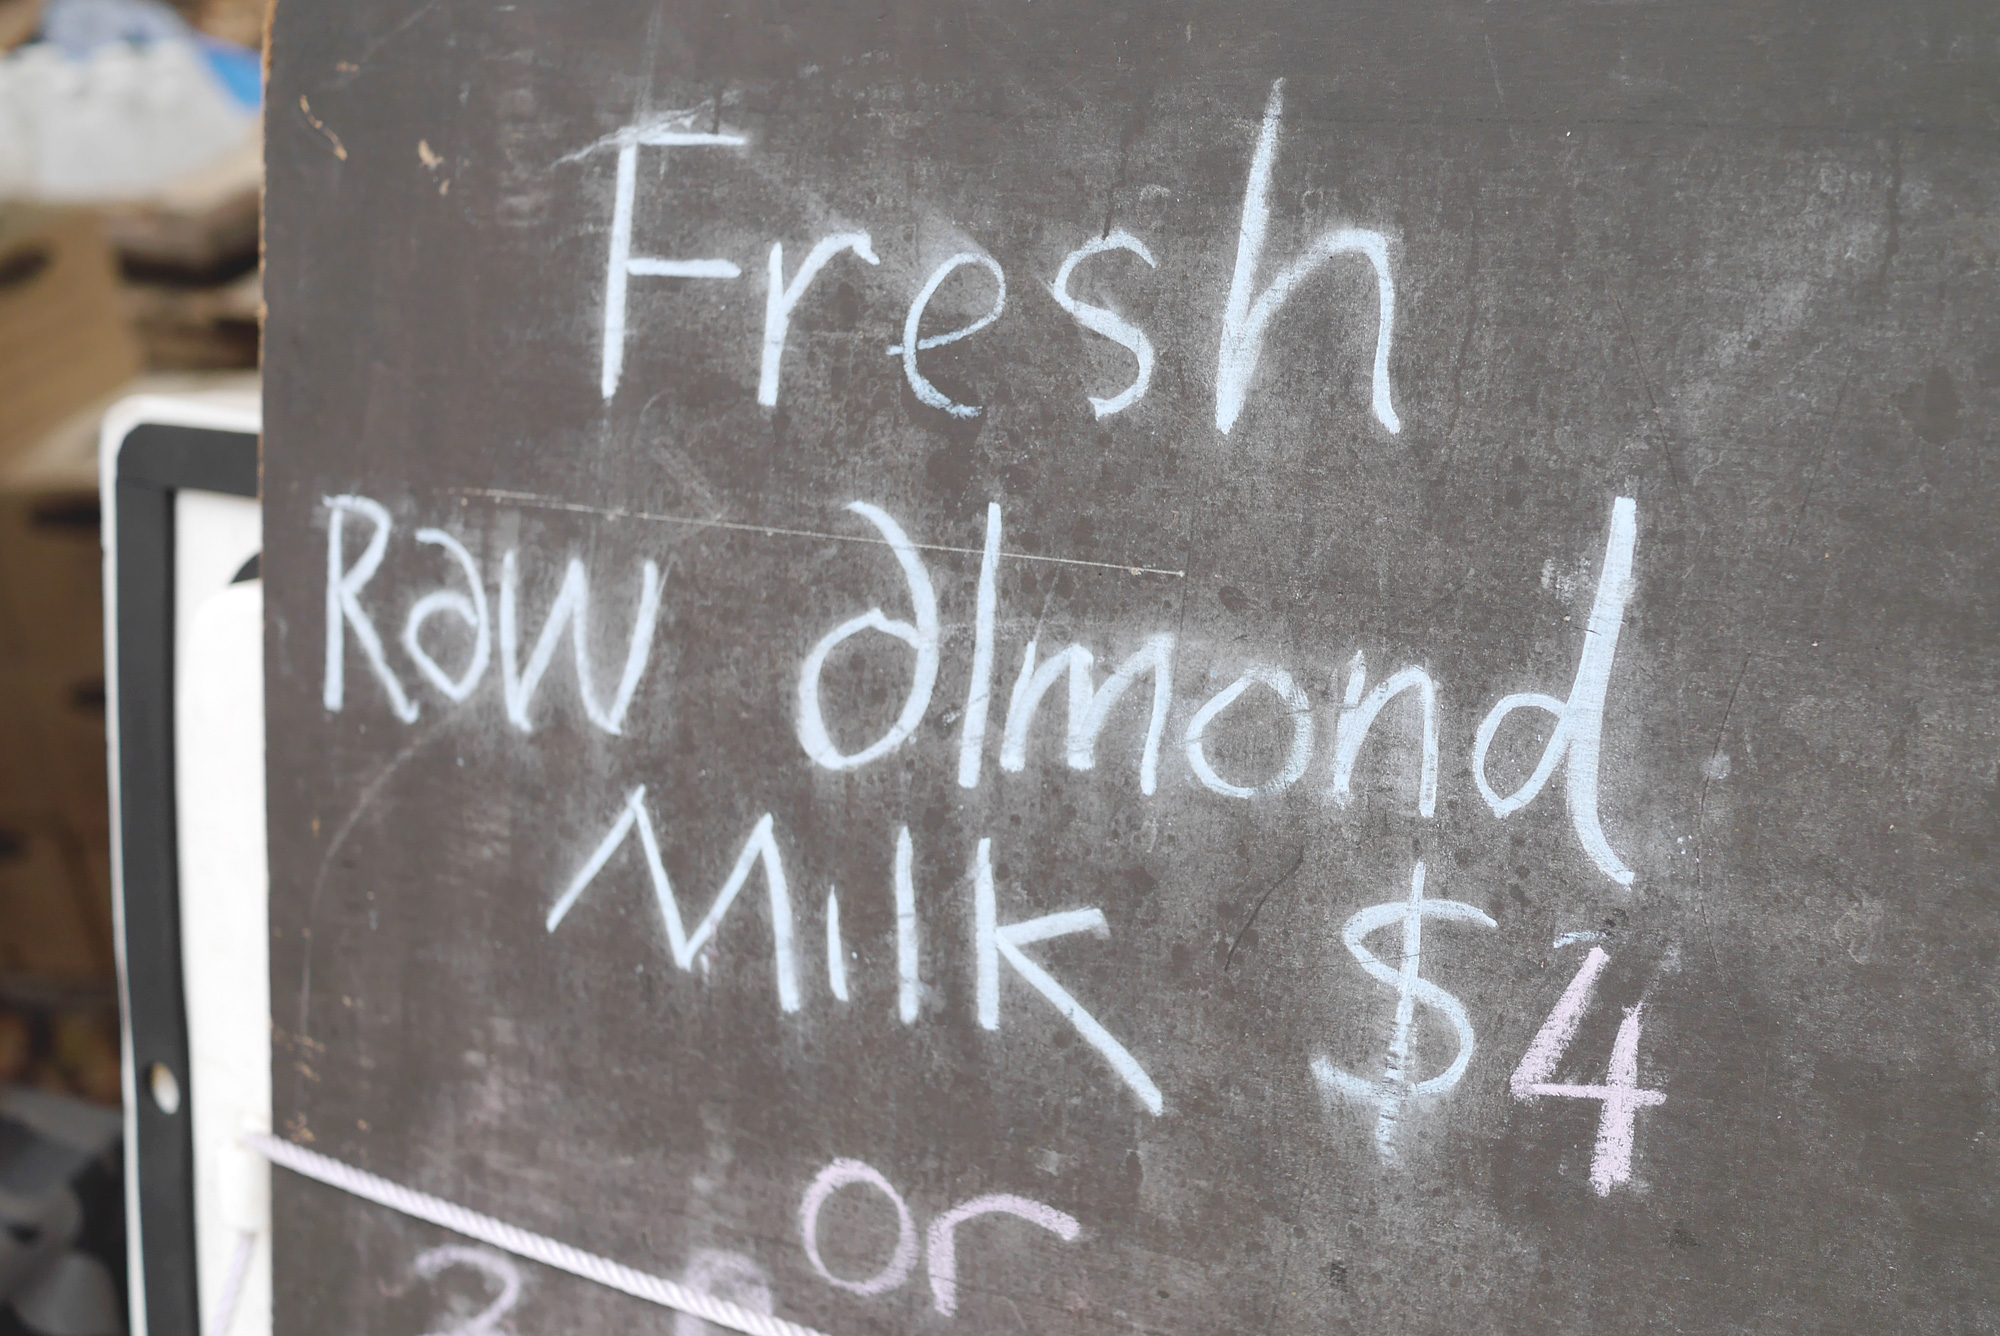 Fresh
Raw almond
Milk $4
or
2